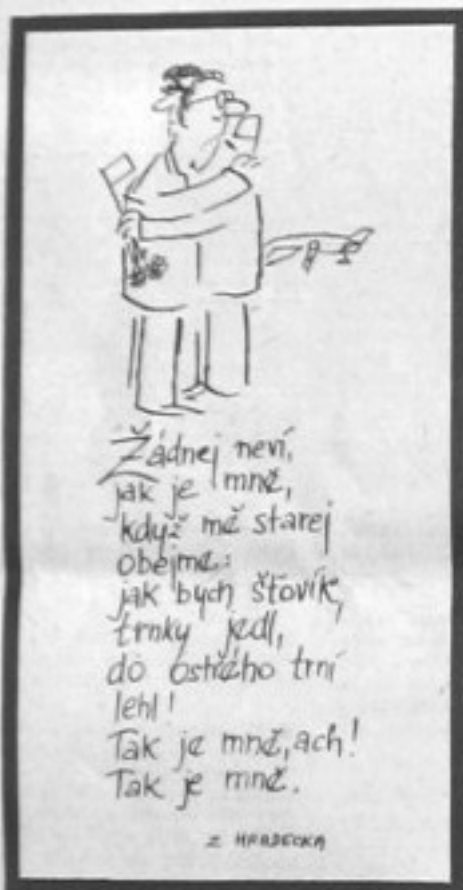 Žádnej neví,
jak je mně,
když mě starej
obejme:
jak bych šťovík,
trnky jedl,
do ostřého trní
lehl!
Tak je mně, ach!
Tak je mně.
Z HRADECKA